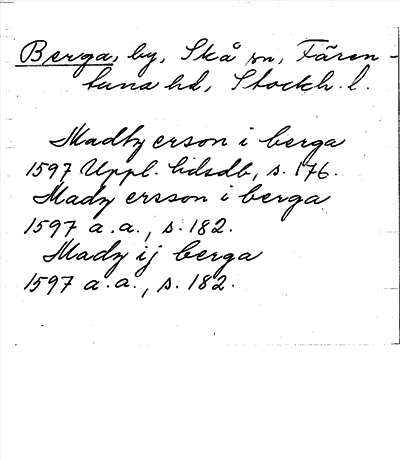 Berga, by, Skå sn, Fären-
tuna hd, Stockh. l.
Madty erson i berga
1597 Uppl. tidsdb, s. 176.
Mady ersson i berga
1597 a.a., s. 182.
Mady ij berga
1597 a.a., s. 182.